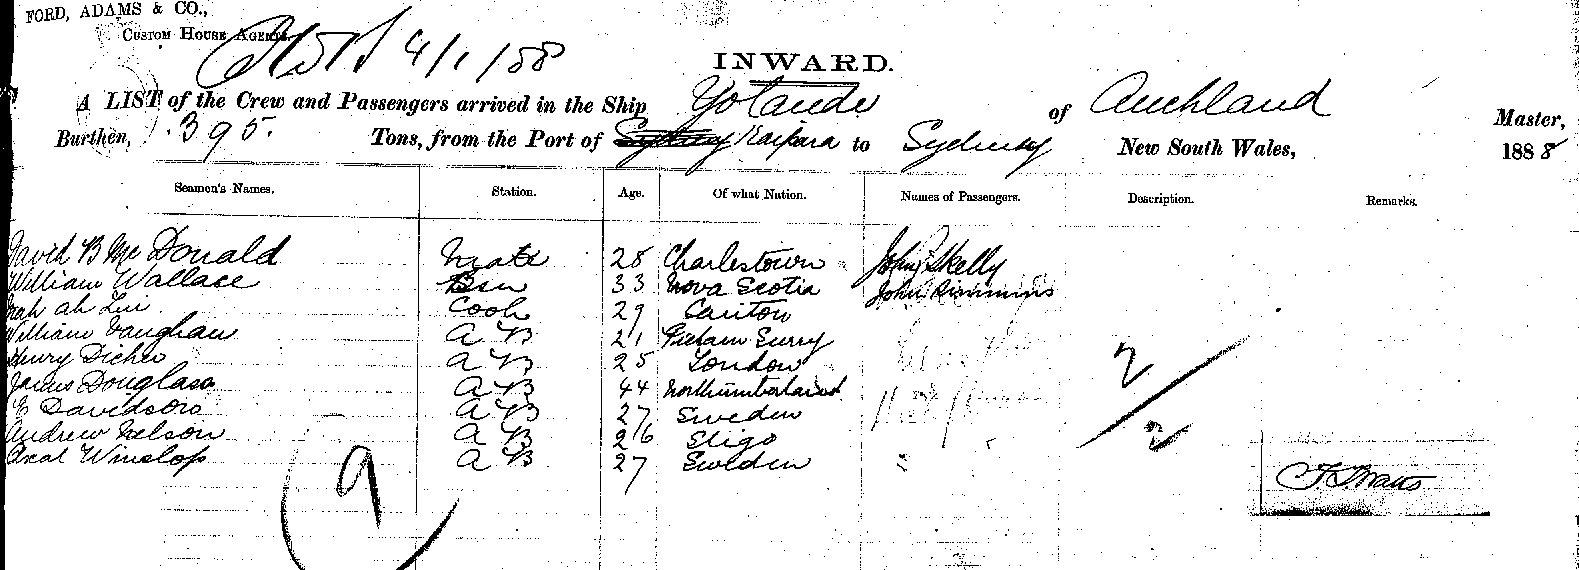 FORD, ADAMS & CO.,
CUSTOM HOUSE AGENTS.
4/1/88
INWARD.
A LIST of the Crew and Passengers arrived in the Ship Yolande of Auckland Master,
Burthen, 395. Tons, from the Port of Sydney Kaipara to Sydney New South Wales, 1888
Seamen's Names. Station. Age. Of what Nation. Names of Passengers. Description. Remarks.
David B McDonald Mate 28 Charlestown John Skelly
William Wallace 33 Nova Scotia John Simmins
ah Cook 29 Canton
William Vaughan AB 21 Surry
Henry AB 25 London
James Douglass AB 44 Northumberland
E Davidson AB 27 Sweden
Andrew Nelson AB 26 Sligo
Axal Winslop AB 27 Sweden
2/2
9